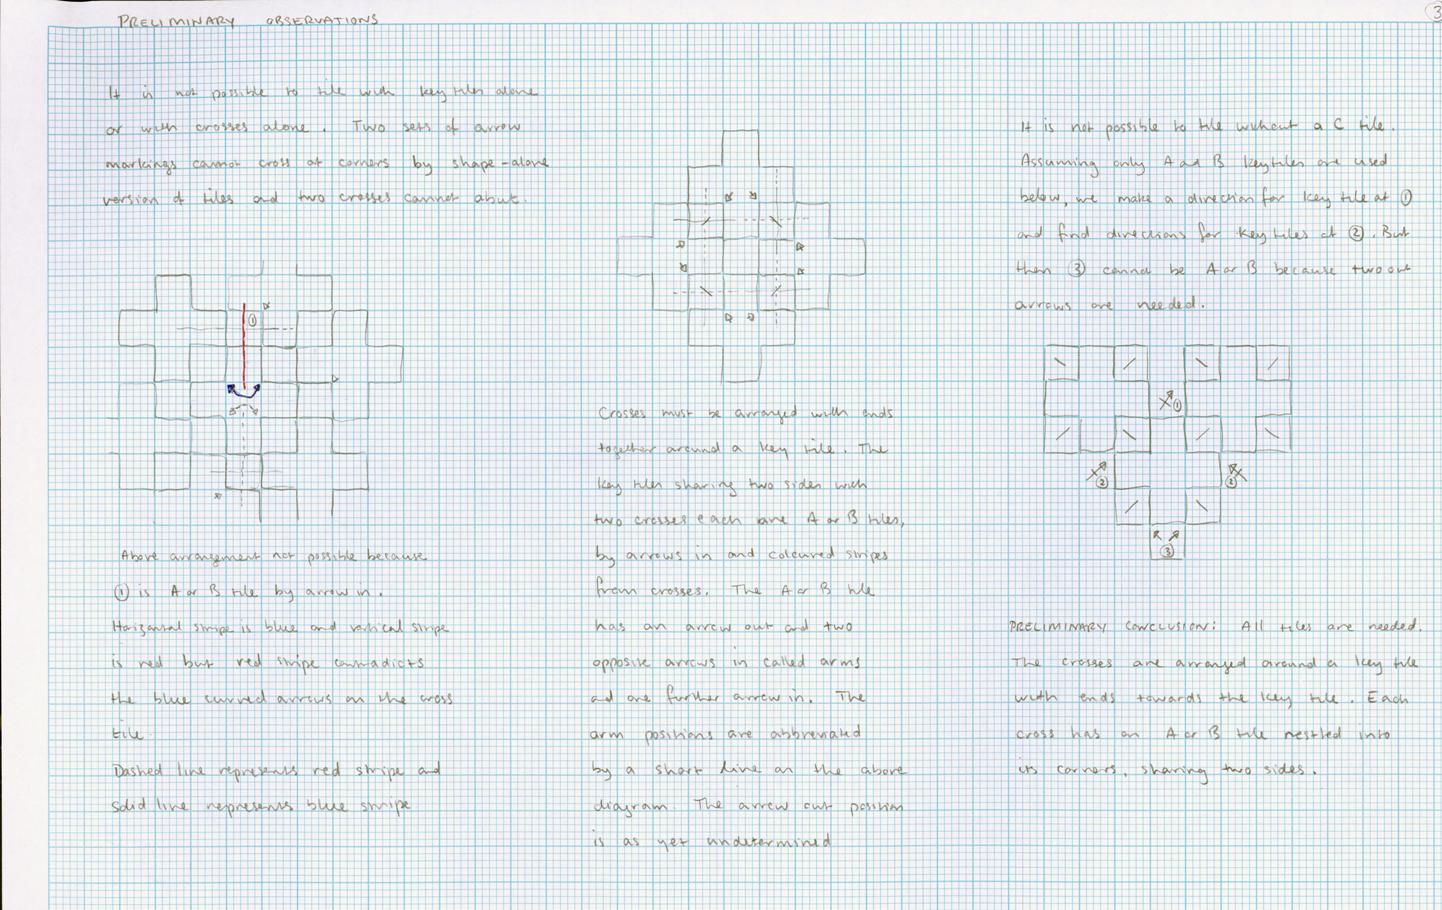 3
PRELIMINARY OBSERVATIONS
It is not possible to tile with key tiles alone
or with crosses alone. Two sets of arrow
markings cannot cross at corners by shape-alone
version of tiles and two crosses cannot abut.
1
Above arrangement not possible because
1 is A or B tile by arrow in.
Horizontal stripe is blue and vertical stripe
is red but red stripe contradicts
the blue curved arrows on the cross
tile.
Dashed line represents red stripe and
solid line represents blue stripe
Crosses must be arranged with ends
together around a key tile. The
key tiles sharing two sides with
two crosses each are A or B tiles,
by arrows in and coloured stripes
from crosses. The A or B tile
has an arrow out and two
opposite arrows in called arms
and one further arrow in. The
arm positions are abbreviated
by a short line on the above
diagram. The arrow out position
is as yet undetermined
It is not possible to tile without a C tile.
Assuming only A and B key tiles are used
below, we make a direction for key tile at 1
and find directions for key tiles at 2. But
then 3 cannot be A or B because two out
arrows are needed.
1
2
2
3
PRELIMINARY CONCLUSION: All tiles are needed.
The crosses are arranged around a key tile
with ends towards the key tile. Each
cross has an A or B tile nestled into
its corners, sharing two sides.